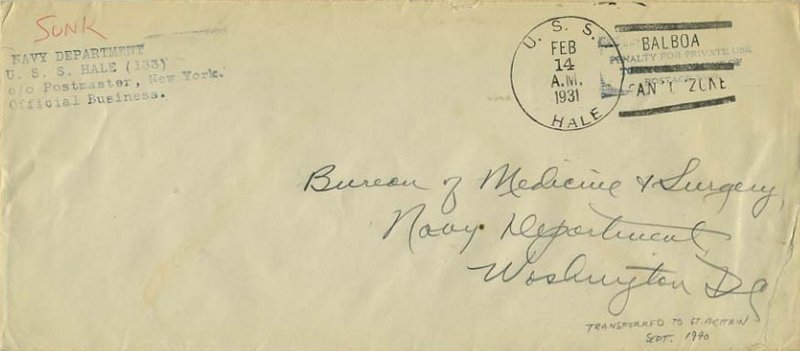 SUNK
NAVY DEPARTMENT
U. S. S. HALE (133)
c/o Postmaster, New York.
Official Business.
U. S. S.
FEB
14
A.M.
1931
HALE
BALBOA
CAN'L ZONE
PENALTY FOR PRIVATE USE
POSTAGE
Bureau of Medicine & Surgery
Navy Department
Washington DC
TRANSFERRED TO GT. BRITAIN
SEPT. 1940